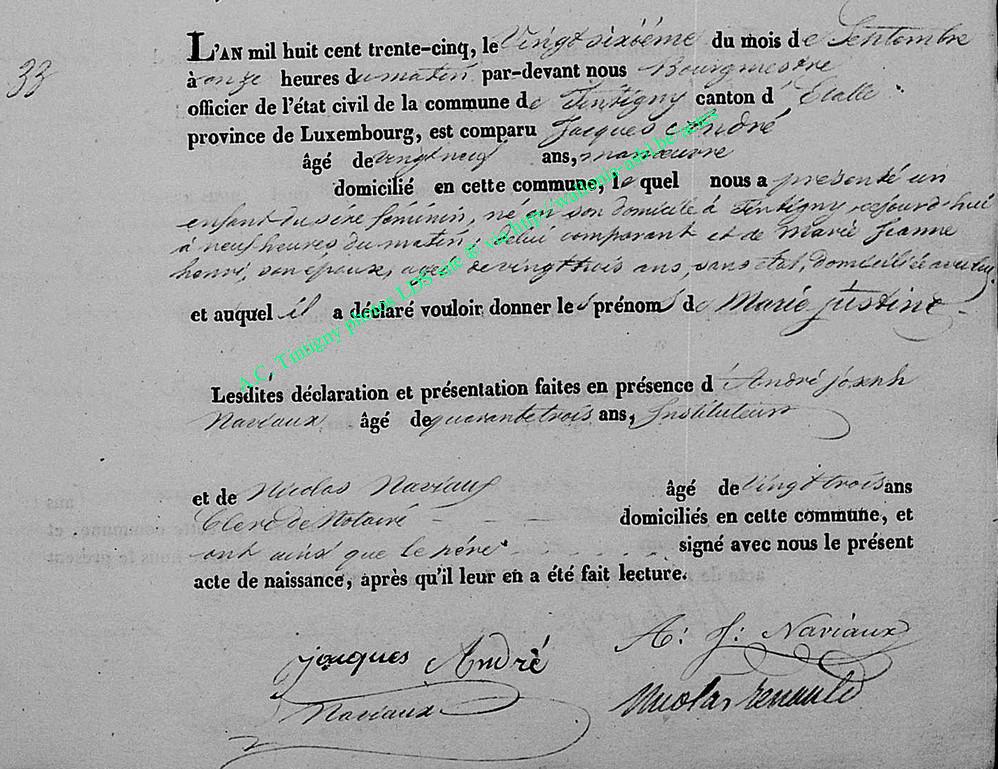 33
L'AN mil huit cent trente-cinq, le Vingt sixième du mois de Septembre
à onze heures du matin par-devant nous Bourgmestre
officier de l'état civil de la commune de Tintigny canton d'Etalle
province de Luxembourg, est comparu Jacques André
âgé de vingt neuf ans, manœuvre
domicilié en cette commune, le quel nous a présenté un
enfant du sexe féminin, né en son domicile à Tintigny, cejourd'hui
à neuf heures du matin, de lui comparant et de Marie Jeanne
henri, son épouse, agée de vingt trois ans, sans état, domiciliée avec lui,
et auquel il a déclaré vouloir donner les prénoms de Marie justine.
Lesdites déclaration et présentation faites en présence d'André joseph
Naviaux âgé de quarante trois ans, Instituteur
et de Nicolas Naviaux âgé de vingt trois ans
Clerc de Notaire domiciliés en cette commune, et
ont ainsi que le père signé avec nous le présent
acte de naissance, après qu'il leur en a été fait lecture.
jacques André A: J: Naviaux
Naviaux Nicolas
A.C. Tintigny photos LDS site & via http://wallonia-asbl.be/actes